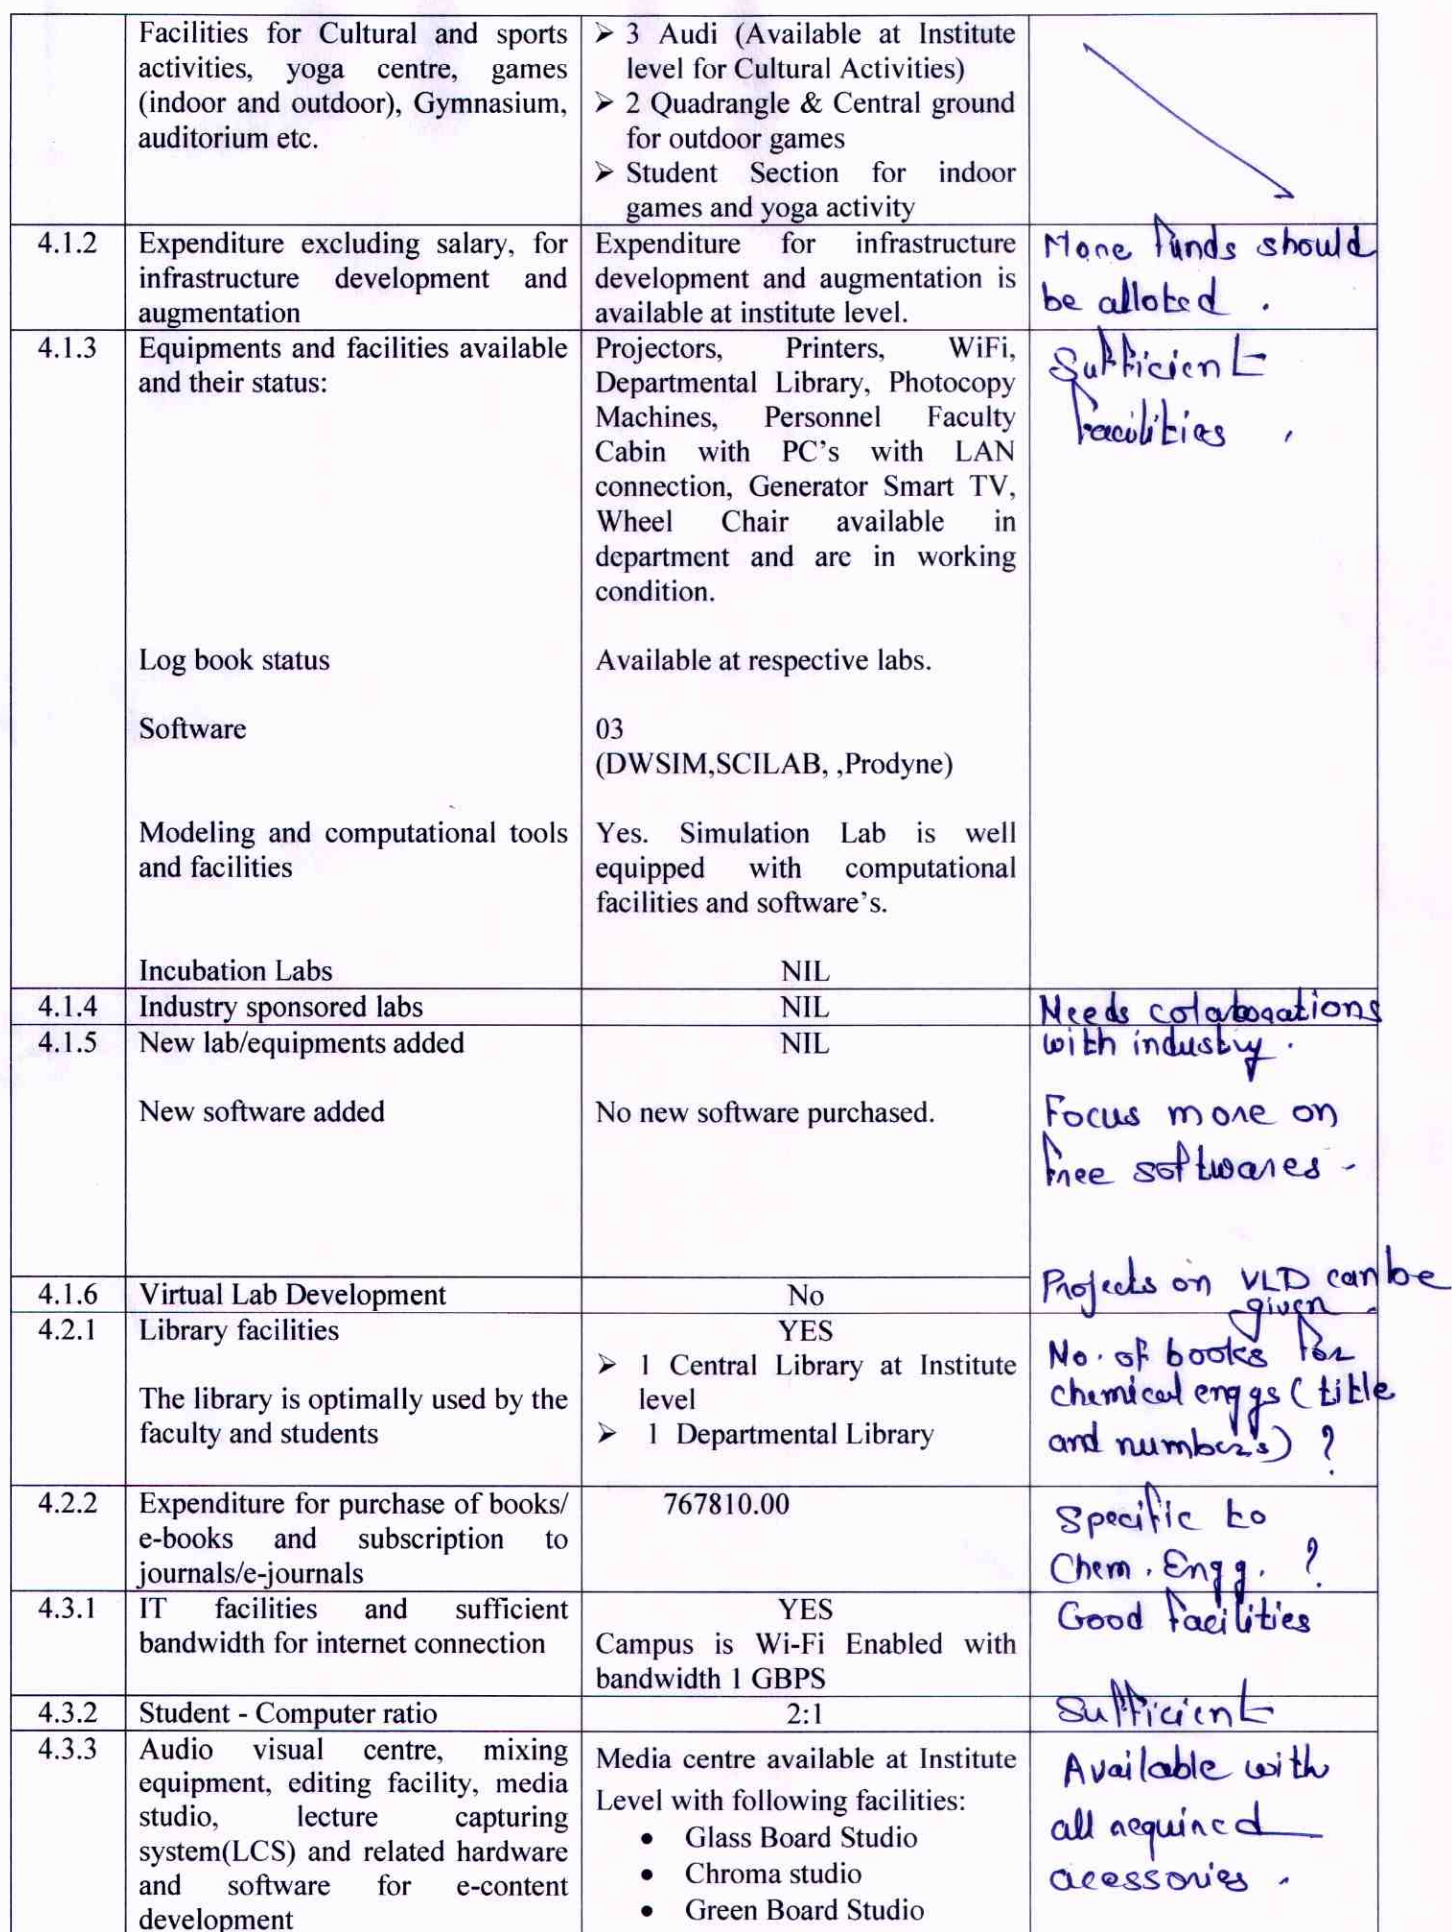 Facilities for Cultural and sports
activities, yoga centre, games
(indoor and outdoor), Gymnasium,
auditorium etc.
➢ 3 Audi (Available at Institute
level for Cultural Activities)
➢ 2 Quadrangle & Central ground
for outdoor games
➢ Student Section for indoor
games and yoga activity
4.1.2
Expenditure excluding salary, for
infrastructure development and
augmentation
Expenditure for infrastructure
development and augmentation is
available at institute level.
More funds should
be alloted .
4.1.3
Equipments and facilities available
and their status:
Projectors, Printers, WiFi,
Departmental Library, Photocopy
Machines, Personnel Faculty
Cabin with PC's with LAN
connection, Generator Smart TV,
Wheel Chair available in
department and are in working
condition.
Sufficient
facilities .
Log book status
Available at respective labs.
Software
03
(DWSIM,SCILAB, ,Prodyne)
Modeling and computational tools
and facilities
Yes. Simulation Lab is well
equipped with computational
facilities and software's.
Incubation Labs
NIL
4.1.4
Industry sponsored labs
NIL
Needs colaborations
with industry.
4.1.5
New lab/equipments added
NIL
New software added
No new software purchased.
Focus more on
free softwares -
4.1.6
Virtual Lab Development
No
Projects on VLD can be
given -
4.2.1
Library facilities
The library is optimally used by the
faculty and students
YES
➢ 1 Central Library at Institute
level
➢ 1 Departmental Library
No. of books for
chemical enggs (title
and numbers) ?
4.2.2
Expenditure for purchase of books/
e-books and subscription to
journals/e-journals
767810.00
Specific to
Chem. Engg. ?
4.3.1
IT facilities and sufficient
bandwidth for internet connection
YES
Campus is Wi-Fi Enabled with
bandwidth 1 GBPS
Good facilities
4.3.2
Student - Computer ratio
2:1
Sufficient
4.3.3
Audio visual centre, mixing
equipment, editing facility, media
studio, lecture capturing
system(LCS) and related hardware
and software for e-content
development
Media centre available at Institute
Level with following facilities:
• Glass Board Studio
• Chroma studio
• Green Board Studio
Available with
all required
acessories .